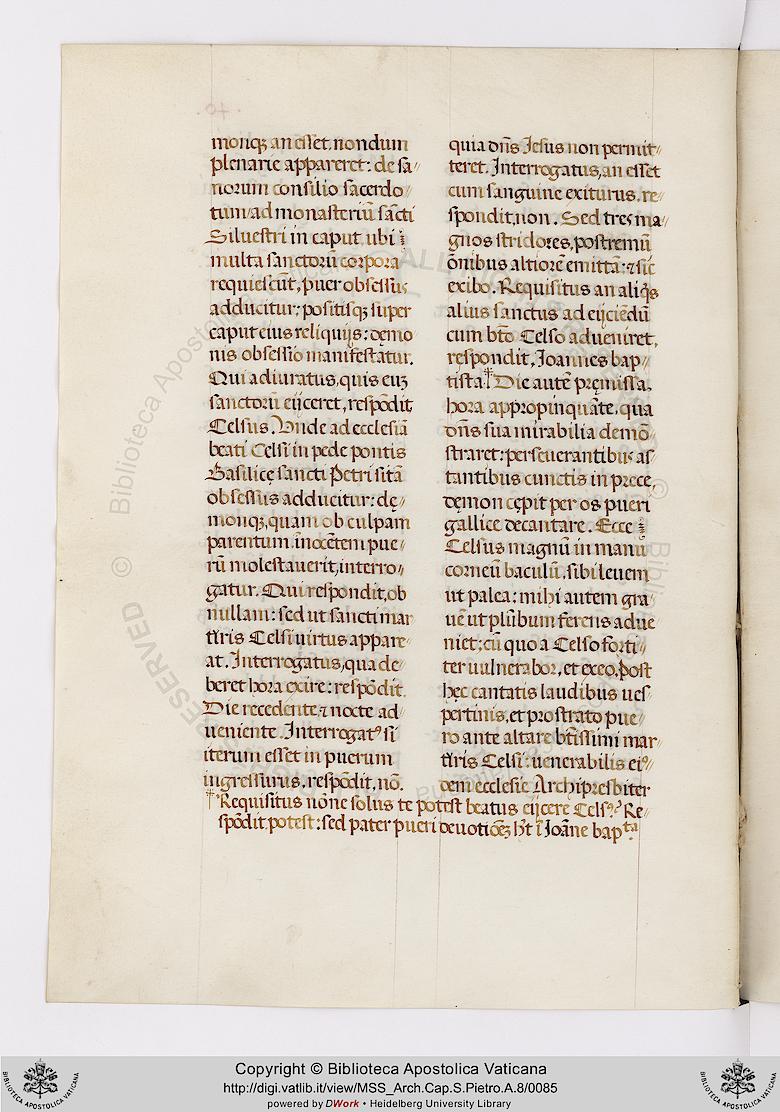 monq̃ an esset. nondum
plenarie appareret: de sa〃
norum consilio sacerdo〃
tum ad monasteriũ sãcti
Siluestri in caput ubi
multa sanctorũ corpora
requiescũt, puer obsessus
adducitur: positisq̃ super
caput eius reliquijs: demo
nis obsessio manifestatur.
Qui adiuratus, quis euȝ
sanctorũ eijceret, respõdit
Celsus. Vnde ad ecclesiã
beati Celsi in pede pontis
Basilicę sancti Petri sitã
obsessus adducitur: dę〃
monq̃, quam ob culpam
parentum, inocẽtem pue〃
rũ molestauerit, interro〃
gatur. Qui respondit, ob
nullam: sed ut sancti mar
tiris Celsi uirtus appare〃
at. Interrogatus, qua de〃
beret hora exire: respõdit.
Die recedente ⁊ nocte ad〃
ueniente. Interrogatꝰ si
iterum esset in puerum
ingressurus, respõdit, nõ.
‡ Requisitus nõne solus te potest beatus eijcere Celsꝰ? Re〃
spõdit, potest: sed pater pueri deuotiõeȝ hʼt ĩ Joãne bapᵗᵃ.
quia dñs Jesus non permit〃
teret. Interrogatus, an esset
cum sanguine exiturus, re〃
spondit, non. Sed tres ma〃
gnos stridores, postremũ
õnibus altiorẽ emittã: ⁊ sic
exibo. Requisitus an aliq̃s
alius sanctus ad eijciẽdũ
cum bťo Celso adueniret,
respondit, Joannes bap〃
tista.‡ Die autẽ pręmissa,
hora appropinquãte, qua
dñs sua mirabilia demõ〃
straret: perseuerantibus as〃
tantibus cunctis in prece,
dęmon cępit per os pueri
gallice decantare. Ecce
Celsus magnũ in manu
corneũ baculũ, sibi leuem
ut palea: mihi autem gra〃
uẽ ut plũbum ferens adue〃
niet: cũ quo a Celso forti〃
ter uulnerabor, et exeo. Post
hęc cantatis laudibus ues〃
pertinis, et prostrato pue〃
ro ante altare bťissimi mar〃
tiris Celsi: uenerabilis eiꝰ〃
dem ecclesie Archipresbiter
Copyright © Biblioteca Apostolica Vaticana
http://digi.vatlib.it/view/MSS_Arch.Cap.S.Pietro.A.8/0085
powered by DWork • Heidelberg University Library
BIBLIOTECA APOSTOLICA VATICANA
BIBLIOTECA APOSTOLICA VATICANA